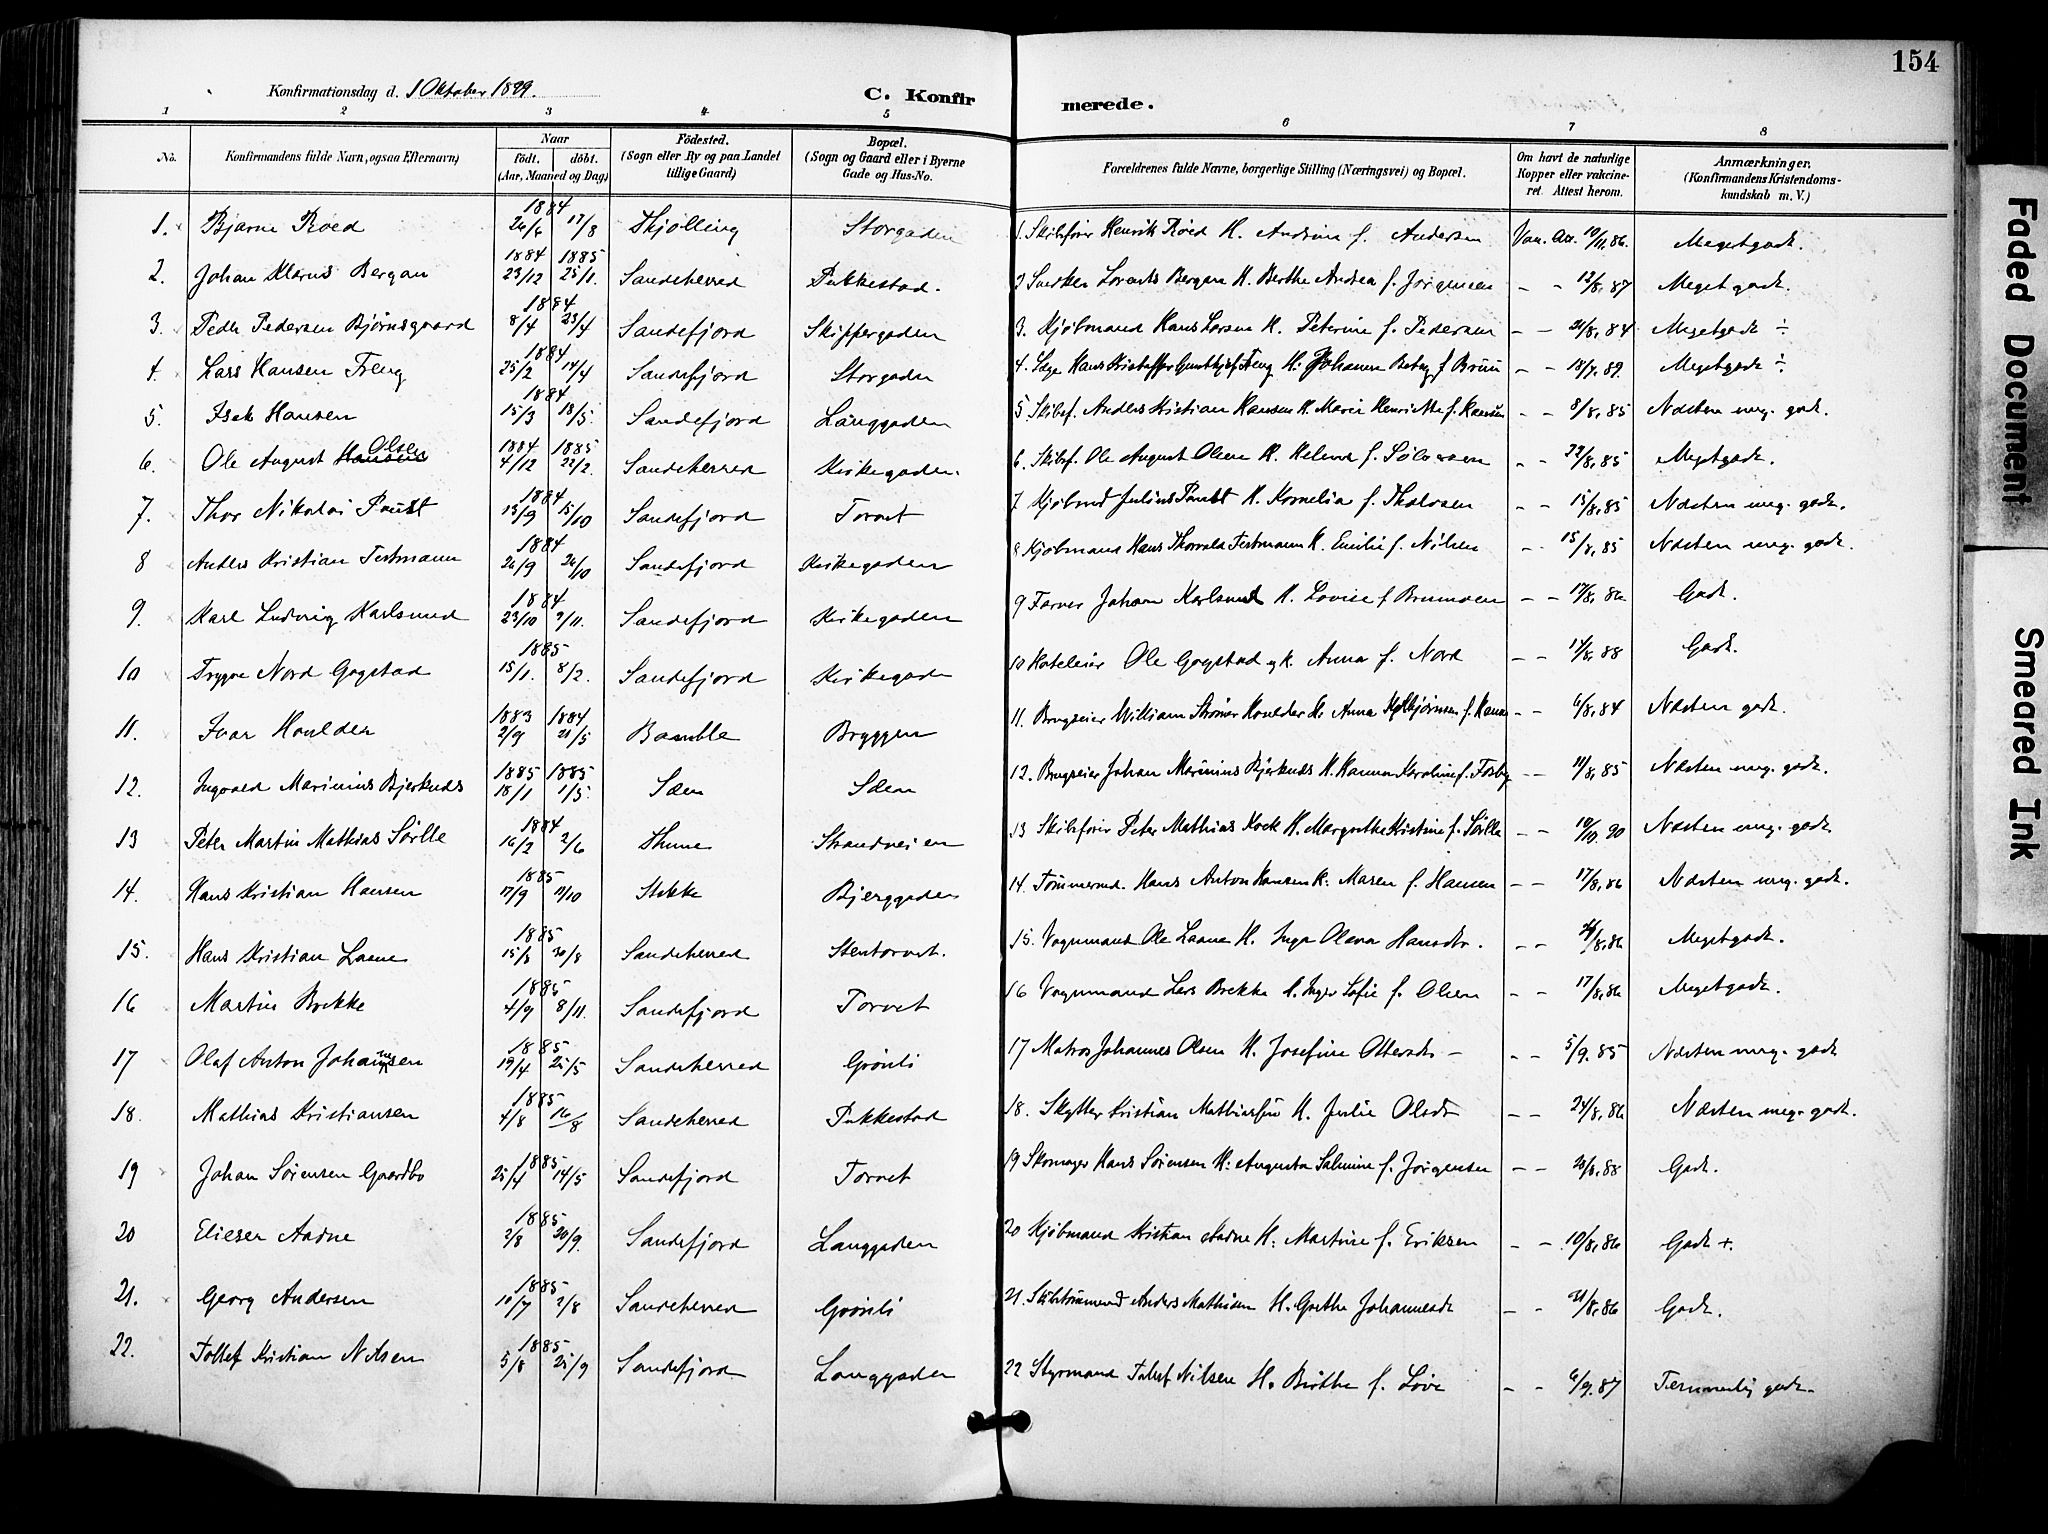 154
Konfirmationsdag d. 1 Oktober 1899.
C. Konfirmerede.
1 2 3 4 5 6 7 8
No. Konfirmandens fulde Navn, ogsaa Efternavn) Naar født. døbt. (Aar, Maaned og Dag) Fødested. (Sogn eller By og paa Landet tillige Gaard) Bopæl. (Sogn og Gaard eller i Byerne Gade og Hus-No. Forældrenes fulde Navne, borgerlige Stilling (Næringsvei) og Bopæl. Om havt de naturlige Kopper eller vakcineret. Attest herom. Anmærkninger. (Konfirmandens Kristendomskundskab m. V.)
1. Bjarne Røed 1884 26/6 17/8 Thjølling Storgaden 1. Skibsfører Henrik Røed H. Andrea f. Andersen Vac. Att. 10/11.86. Meget godt.
2. Johan Klerus Bergan 1884 23/12 1885 25/1. Sandeherred Pukkestad. 2 Snedker Lorents Bergan H. Berthe Andrea f. Jørgensen - - 12/8.87 Meget godt.
3. Peder Pedersen Bjørnsgaard 1884 8/4 23/4 Sandefjord Skippergaden 3. Kjøbmand Hans Larsen H. Peterine f. Pedersen - - 21/8.84 Meget godt ÷
4. Lars Hansen Freng 1884 25/2 14/4 Sandefjord Storgaden 4. Hans Kristoffer Freng H. Johanne f. Bruun - - 18/7.89. Meget godt ÷
5. Isak Hansen 1884 15/3 18/5. Sandefjord Langgaden 5 Skibsf. Anders Kristian Hansen H. Maren Henriette f. Hansen - - 8/8.85 Næsten meg. godt.
6. Ole August Hansen Olsen 1884 4/12 1885 22/2. Sandeherred Kirkegaden. 6. Skibsf. Ole August Olsen H. Helene f. Sølvesen - - 22/8.85 Meget godt.
7. Thor Nikolai Paust 1884 15/9 15/10 Sandefjord Torvet 7 Kjøbmd Julius Paust H. Kornelia f. - - 15/8.85 Næsten meg. godt.
8 Anders Kristian Testmann 1884 26/9 26/10 Sandefjord Kirkegaden 8 Kjøbmand Hans Thorvald Testmann H. Emilie f. Nilsen - - 15/8.85 Næsten meg. godt.
9. Karl Ludvig Karlsund 1884 23/10 9/11. Sandefjord Kirkegaden 9 Farver Johan Karlsund H. Lovise f Brunsen - - 17/8.86 Godt.
10 Trygve Nord Gogstad 1885 15/1. 8/2. Sandefjord Kirkegaden 10 Hoteleier Ole Gogstad og h. Anna f. Nord - - 14/8.88 Godt.
11. Ivar Houlder 1883 2/9 1884 21/5 Bamble Bryggen 11. Brugseier William Houlder H. Anna f. Hansen - - 6/8.84 Næsten godt.
12. Ingvald Marinius Bjerknæs 1885 18/1 1885 1/5. Sæm Sæm 12. Brugseier Johan Marinius Bjerknæs H. Hanna Karoline f. Foshy - - 11/8.85 Næsten meg. godt.
13 Peter Martin Mathias Sørlle 1884 16/2 2/6 Thune Strandveien 13 Skibsfører Peter Mathias Kock H. Margrethe Kristine f. Sørlle - - 10/10.90 Næsten meg. godt
14. Hans Kristian Hansen 1885 17/9 11/10 Stokke Bjerggaden 14. Tømmermd. Hans Anton Hansen H. Maren f. Hansen - - 17/8.86 Næsten meg. godt.
15. Hans Kristian Laane 1885 15/8 30/8 Sandeherred Stentorvet. 15. Vognmand Ole Laane H. Inga Olava Hansdtr. - - 24/8.86 Meget godt.
16 Martin Brekke 1885 4/9 8/11. Sandefjord Torvet 16 Vognmand Lars Brekke H. Inger Sofie f. Olsen - - 17/8.86 Meget godt.
17 Olaf Anton Johannesen 1885 19/4 25/5 Sandeherred Grønli 17 Matros Johannes Olsen H. Josefine Ottersdtr - - - 5/9.85 Næsten meg. godt
18. Mathias Kristiansen 1885 4/8 16/8 Sandeherred Pukkestad 18. Skytter Kristian Mathiassen H. Julie Olsdtr - - 24/8.86 Næsten meg. godt.
19 Johan Sørensen Gaardbo 1885 25/4 14/5 Sandefjord Torvet 19 Skomager Hans Sørensen H. Augusta Salmine f. Jørgensen - - 20/8.88 Godt.
20 Elieser Aadne 1885 2/8 20/9. Sandefjord Langgaden 20 Kjøbmand Kristian Aadne H. Martine f. Eriksen - - 10/8.86 Godt +.
21. Georg Andersen 1885 10/7 2/8 Sandeherred Grønli 21. Skibstømmermd Anders Mathisen H. Grethe Johannesdt - - 21/8.86 Godt.
22. Tollef Kristian Nilsen 1885 5/8 25/9 Sandefjord Langgaden 22 Styrmand Tollef Nilsen H. Birthe f. Løve - - 6/9.87 Temmelig godt.
Faded Document
Smeared Ink